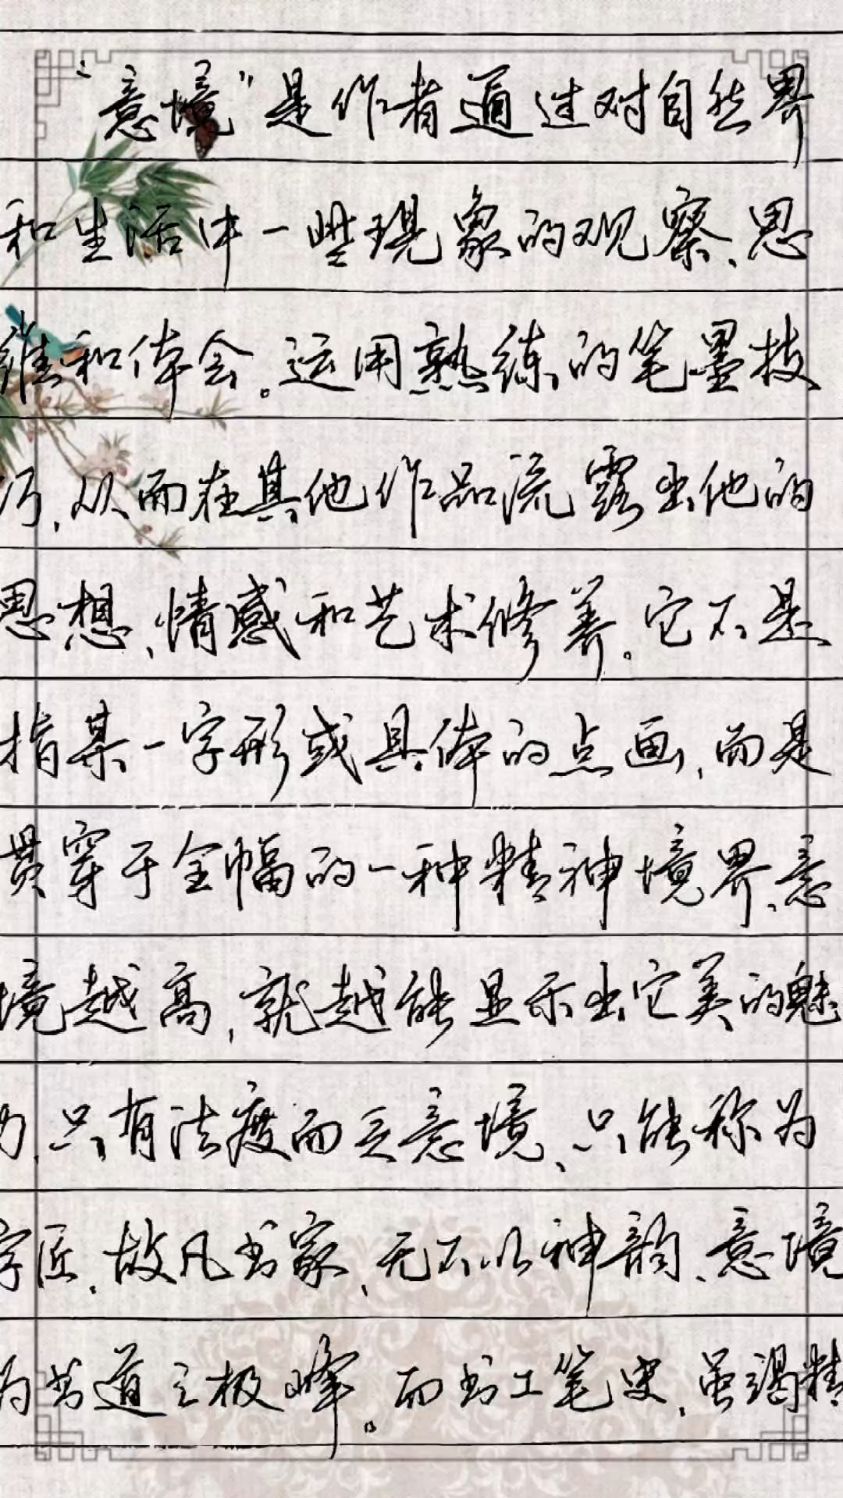 “意境”是作者通过对自然界
和生活中一些现象的观察、思
维和体会。运用熟练的笔墨技
巧,从而在其他作品流露出他的
思想、情感和艺术修养。它不是
指某一字形或具体的点画,而是
贯穿于全幅的一种精神境界、意
境越高,就越能显示出它美的魅
力,只有法度而乏意境、只能称为
字匠,故凡书家,无不以神韵、意境
为书道之极峰。而书工笔吏,虽竭精